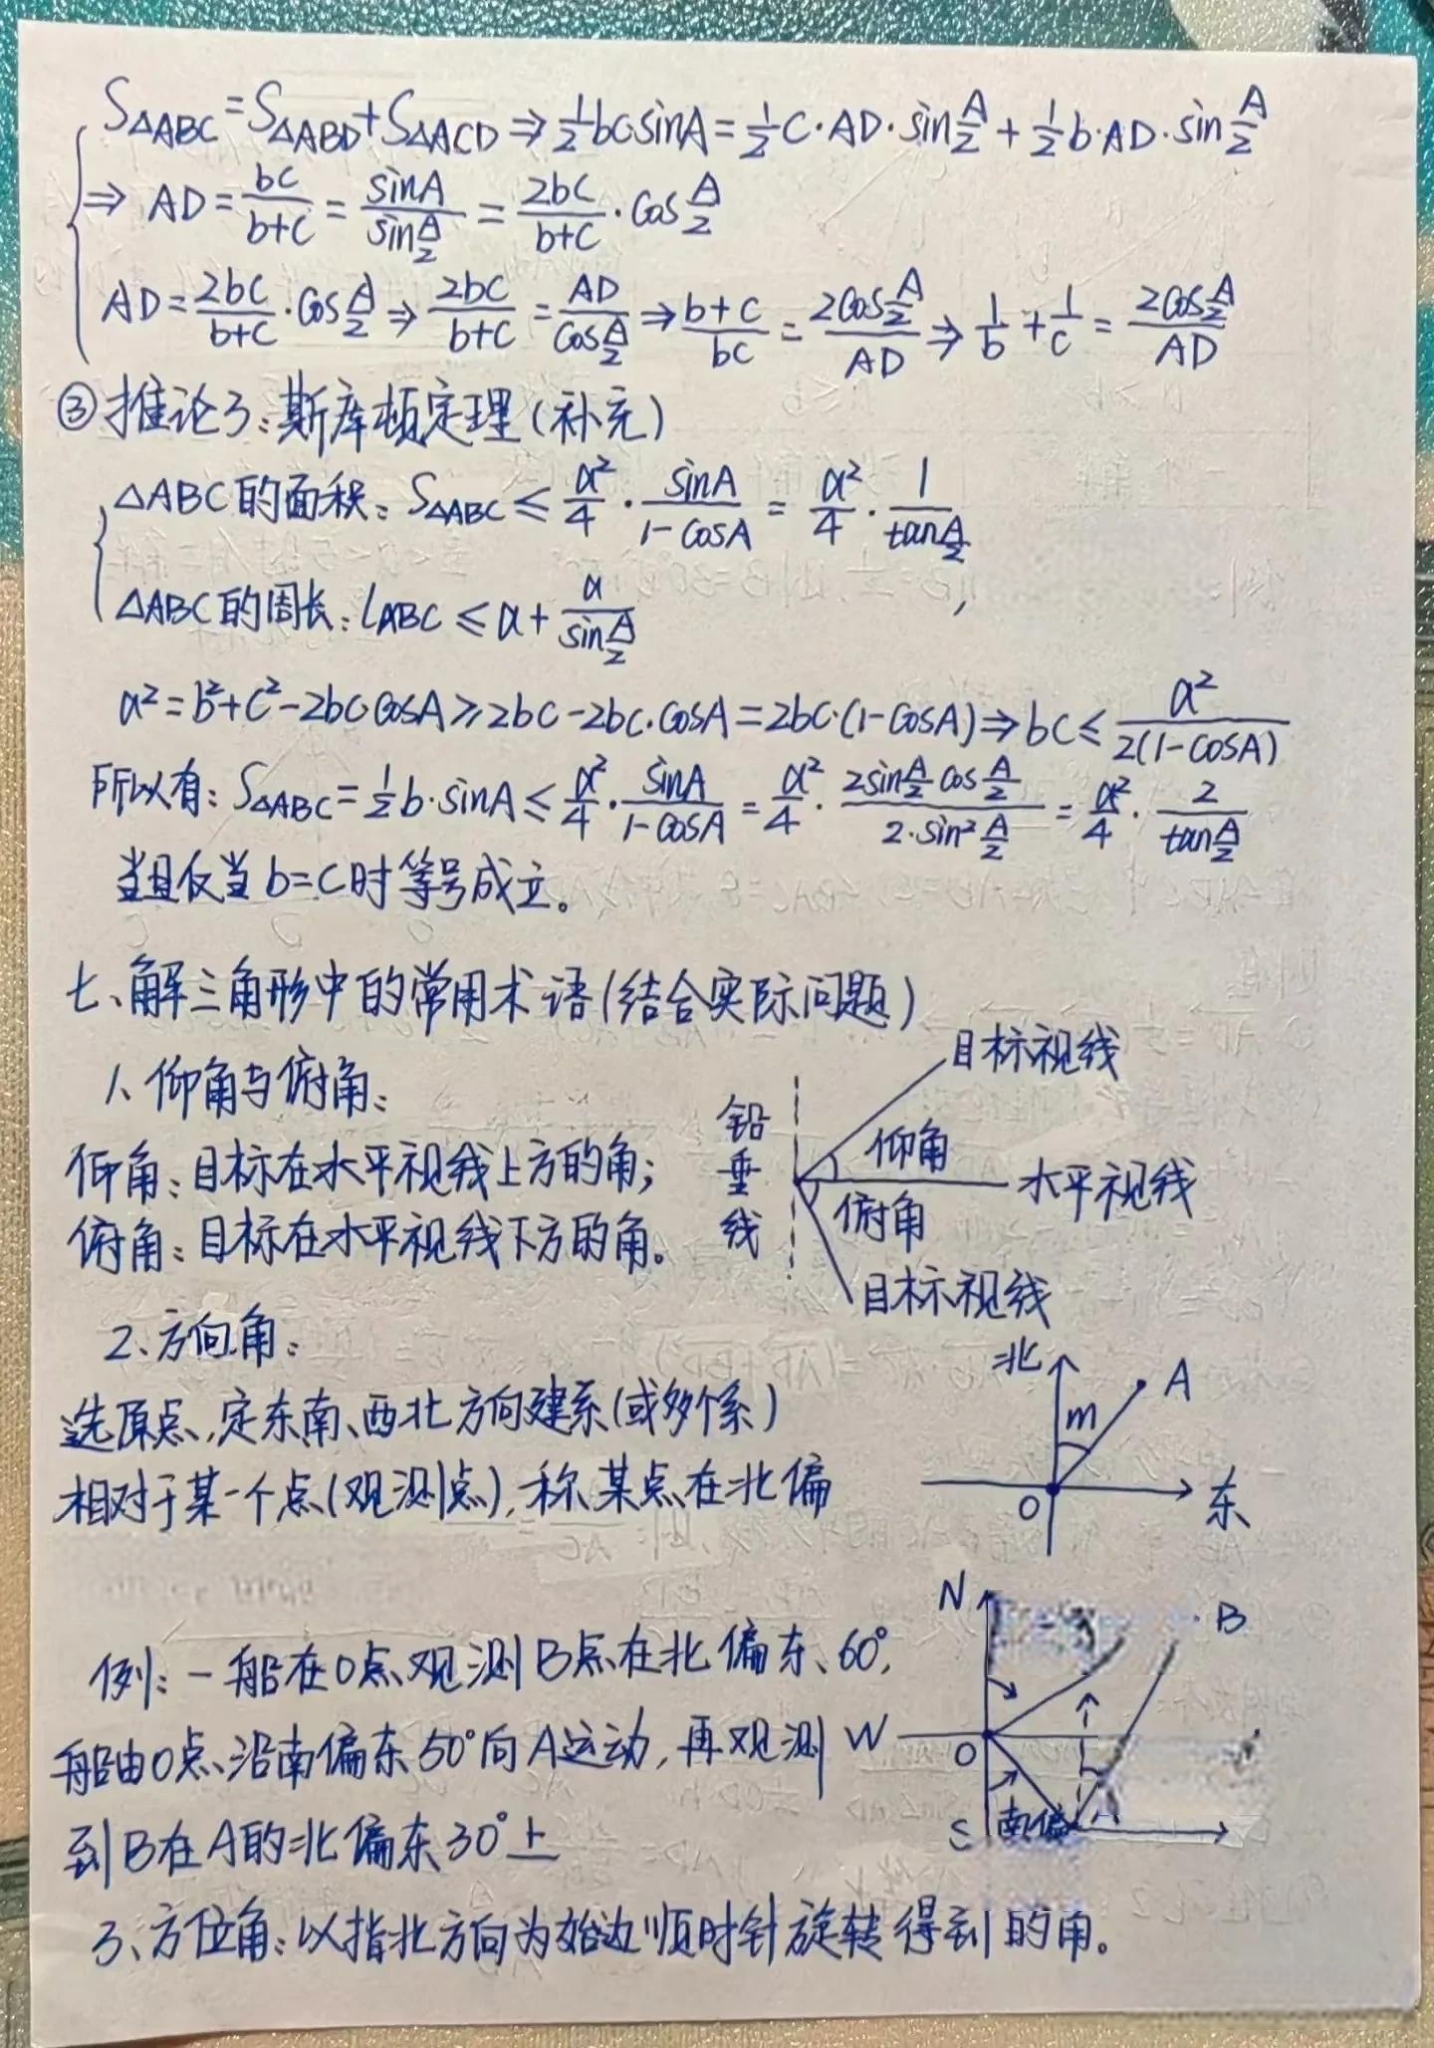 S△ABC=S△ABD+S△ACD⇒1/2bcsinA=1/2C·AD·sinA/2+1/2b·AD·sinA/2
⇒AD=bc/(b+c)=sinA/sinA/2=2bc/(b+c)·cosA/2
AD=2bc/(b+c)·cosA/2⇒2bc/(b+c)=AD/cosA/2⇒(b+c)/bc=2cosA/2/AD⇒1/b+1/c=2cosA/2/AD
③推论3:斯库顿定理(补充)
△ABC的面积:S△ABC≤a²/4·sinA/(1-cosA)=a²/4·1/tanA/2
△ABC的周长:LABC≤a+a/sinA/2
a²=b²+c²-2bc·cosA≥2bc-2bc·cosA=2bc·(1-cosA)⇒bc≤a²/2(1-cosA)
所以有:S△ABC=1/2b·sinA≤a²/4·sinA/(1-cosA)=a²/4·2sinA/2cosA/2/2·sin²A/2=a²/4·2/tanA/2
当且仅当b=c时等号成立。
七、解三角形中的常用术语(结合实际问题)
1、仰角与俯角:
仰角:目标在水平视线上方的角;
俯角:目标在水平视线下方的角。
铅垂线
目标视线
仰角
水平视线
俯角
目标视线
2、方向角:
选原点,定东南、西北方向建系(或多个系)
相对于某一个点(观测点),称某点在北偏
北
A
m
O
东
例:一船在O点观测B点在北偏东60°,
船由O点沿南偏东50°向A运动,再观测
到B在A的北偏东30°上
N
B
W
O
S
南偏
A
3、方位角:以指北方向为始边顺时针旋转得到的角。